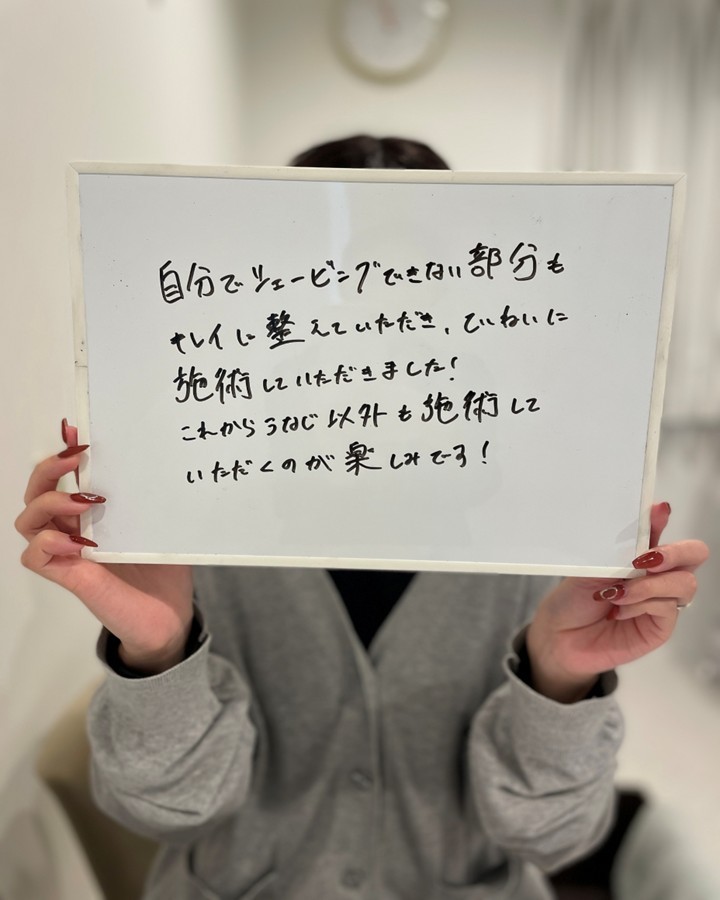 自分でシェービングできない部分も
キレイに整えていただき、ていねいに
施術していただきました!
これからうなじ以外も施術して
いただくのが楽しみです!